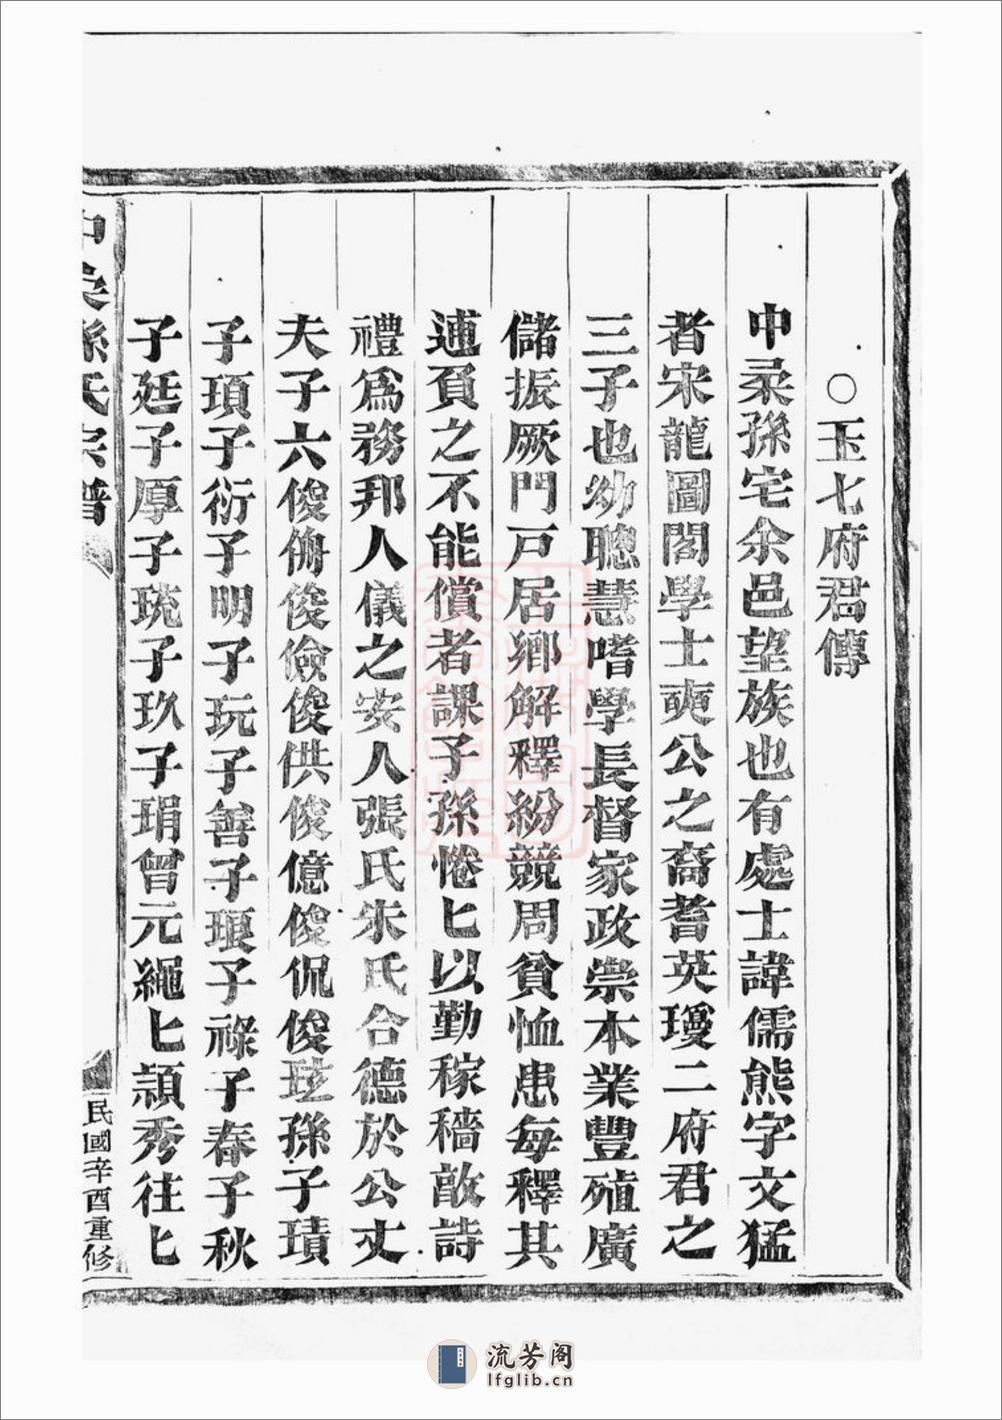 ○玉七府君傳
中柔孫宅余邑望族也有處士諱儒熊字文猛
者宋龍圖閣學士奭公之裔耆英瓊二府君之
三子也幼聰慧嗜學長督家政崇本業豐殖廣
儲振厥門戸居鄉解釋紛競周貧恤患每釋其
逋負之不能償者課子孫惓匕以勤稼穡敦詩
禮爲務邦人儀之安人張氏朱氏合德於公丈
夫子六俊俯俊儉俊供俊億俊侃俊玹孫子璝
子項子衍子明子玩子善子琅子祿子春子秋
子廷子厚子珫子玖子琄曾元繩匕頴秀往匕
中柔孫氏宗譜
民國辛酉重修
流芳阁
lfglib.cn